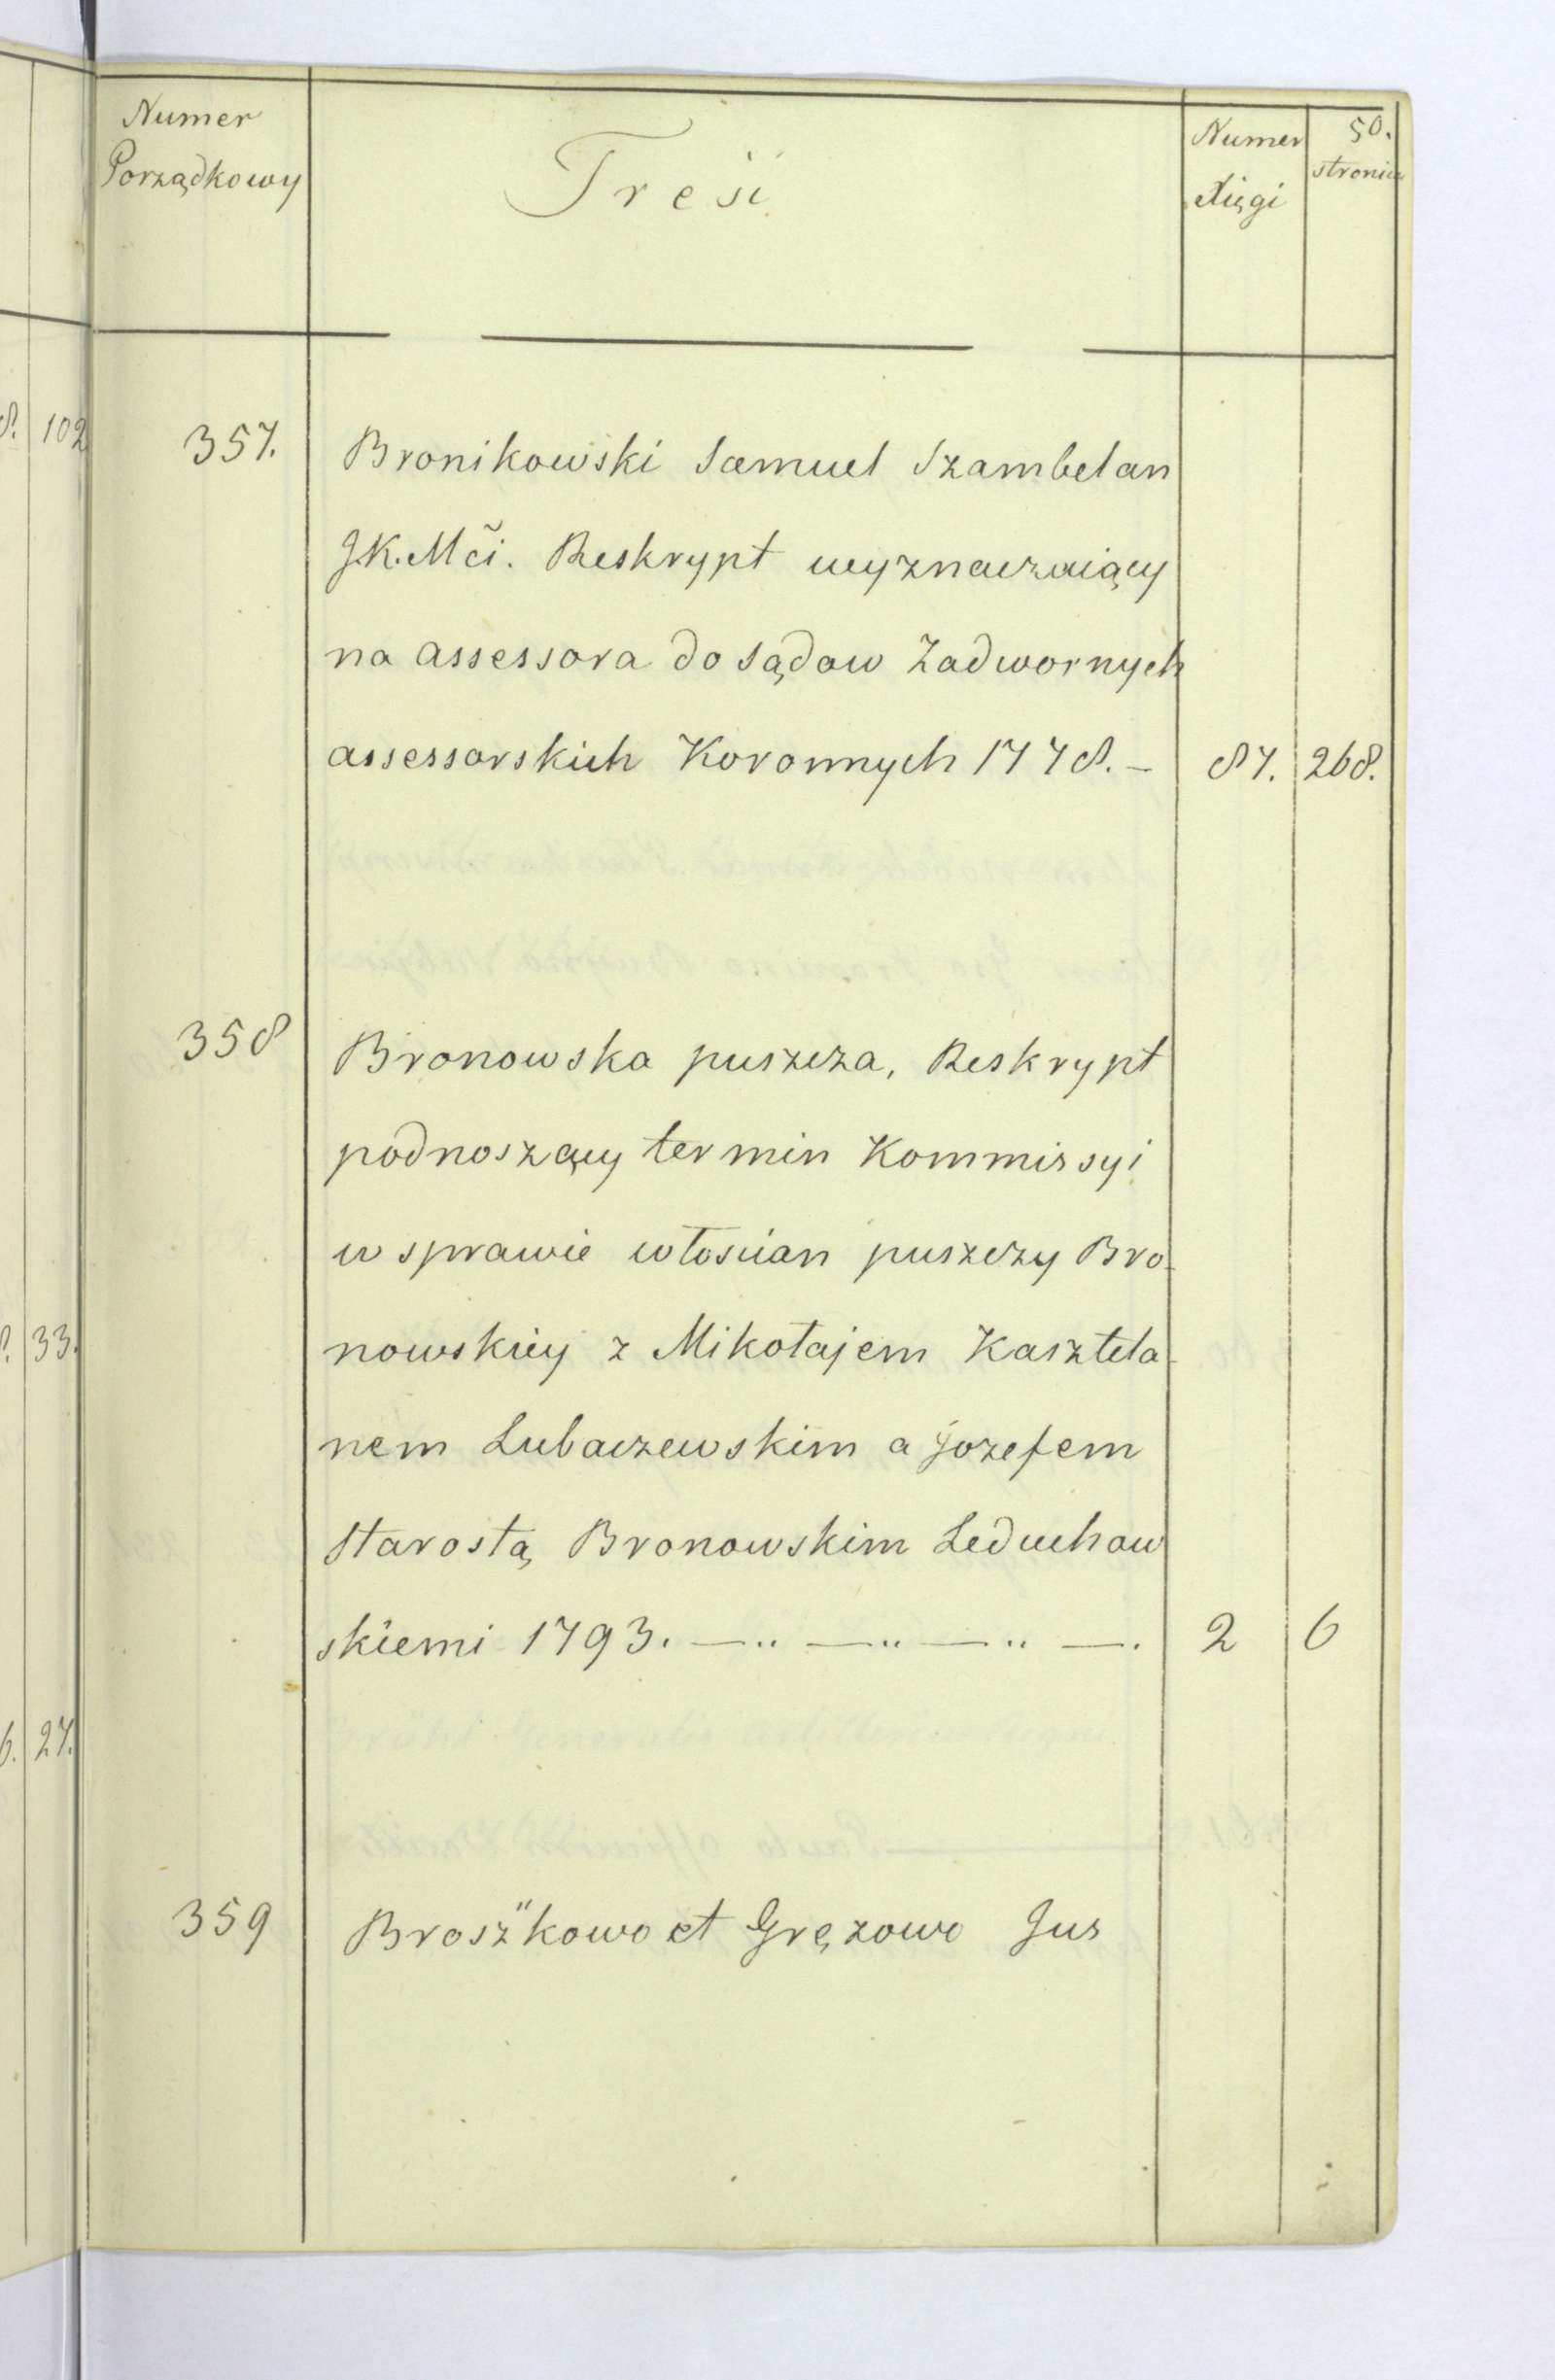 50.
Numer Porządkowy
Treść
Numer Xięgi
stronica
8. 102
357. Bronikowski Samuel Szambelan
J.K.Mči. Reskrypt wyznaczaiący
na assessora do sądow Zadwornych
assessorskich Koronnych 1778. — 87. 268.
358 Bronowska puszcza, Reskrypt
podnoszący termin Kommissyi
w sprawie włoscian puszczy Bro-
33. nowskiey z Mikołajem Kasztela-
nem Lubaczewskim a Jozefem
Starostą Bronowskim Leduchow
skiemi 1793. —.. —.. —.. —. 2 6
6. 27.
359 Broszkowo et Gręzowo Jus